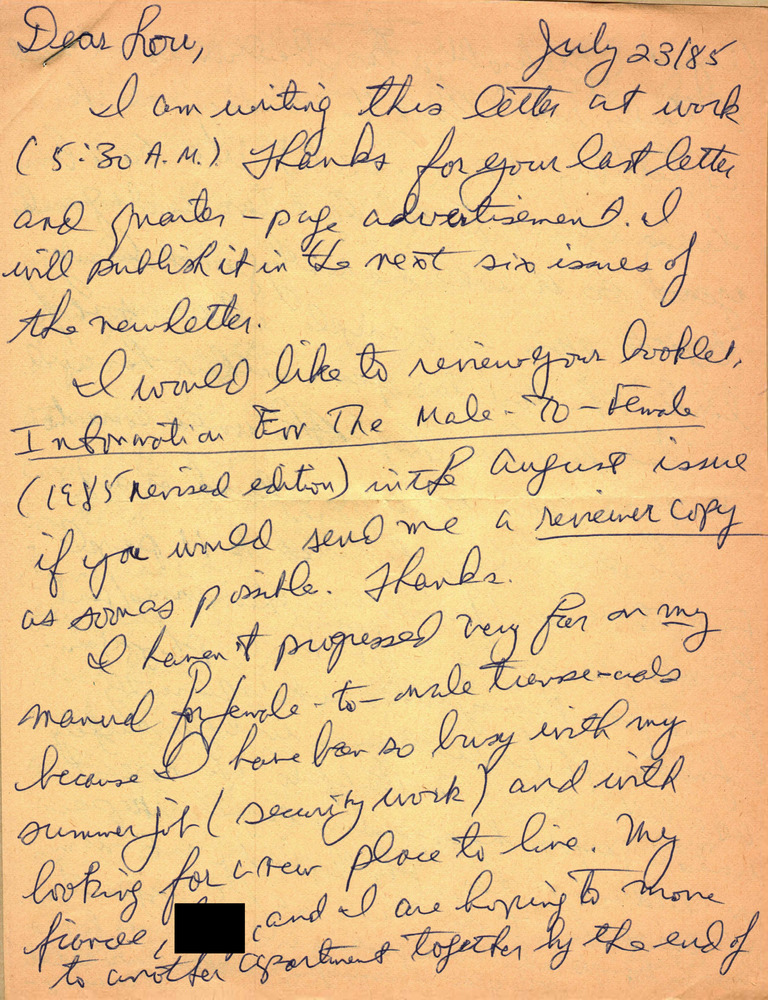 Dear Lou, July 23/85
I am writing this letter at work
(5:30 A.M.) Thanks for your last letter
and quarter-page advertisement. I
will publish it in the next six issues of
the newsletter.
I would like to review your booklet,
Information For The Male-To-Female
(1985 revised edition) in the August issue
if you would send me a reviewer copy
as soon as possible. Thanks.
I haven't progressed very far on my
manual for female-to-male transsexuals
because I have been so busy with my
summer job (security work) and with
looking for a new place to live. My
fiancee, , and I are hoping to move
to another apartment together by the end of